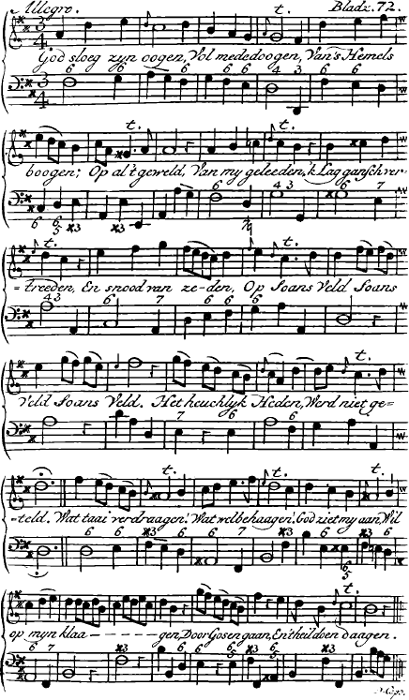 Allegro. Bladz. 72.
God sloeg zyn oogen, Vol mededoogen, Van's Hemels
boogen; Op al't geweld, Van my geleeden, 'k Lag gansch ver-
-treeden, En snood van ze-den, Op Soans Veld Soans
Veld Soans Veld. Het heuchlyk Heden, Werd niet ge-
-teld. Wat taai verdraagen! Wat welbehaagen! God ziet my aan, Wil
op myn klaa- - - - gen, Door Gosen gaan, En theil doen daagen.